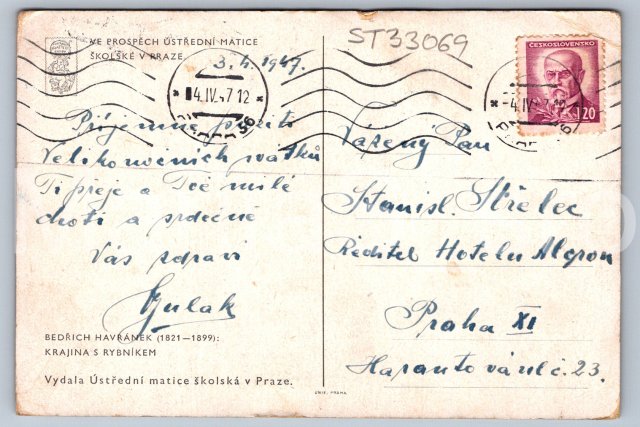 VE PROSPĚCH ÚSTŘEDNÍ MATICE
ŠKOLSKÉ V PRAZE
ST33069
3. 4. 1947.
4.IV.47 12
Příjemné prožití
Velikonočních svátků
Ti přeje a Tvé milé
choti a srdečně
Vás zdraví
BEDŘICH HAVRÁNEK (1821—1899):
KRAJINA S RYBNÍKEM
Vydala Ústřední matice školská v Praze.
UNIE, PRAHA
ČESKOSLOVENSKO
1·20
-4.IV.47-12
Vážený Pan
Stanisl. Střelec
Ředitel Hotelu Alcron
Praha XI
23.